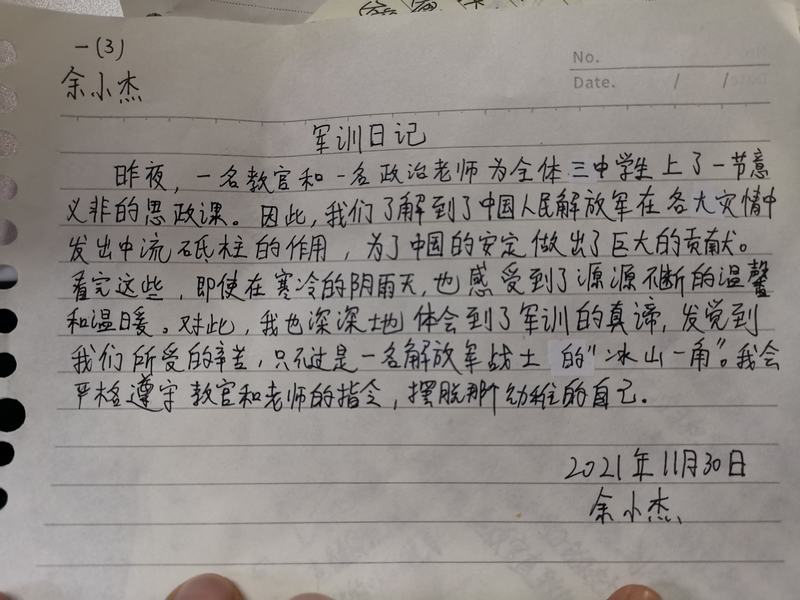 一(3)
余小杰
No.
Date. / /
军训日记
昨夜，一名教官和一名政治老师为全体三中学生上了一节意
义非的思政课。因此，我们了解到了中国人民解放军在各大灾情中
发出中流砥柱的作用，为了中国的安定做出了巨大的贡献。
看完这些，即使在寒冷的阴雨天，也感受到了源源不断的温馨
和温暖。对此，我也深深地体会到了军训的真谛，发觉到
我们所受的辛苦，只不过是一名解放军战士的“冰山一角”。我会
严格遵守教官和老师的指令，摆脱那个幼稚的自己。
2021年11月30日
余小杰